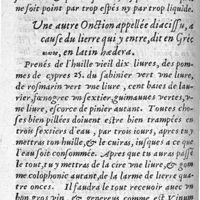 ne soit point par trop espés ny par trop liquide.
Une autre Onction appellée diacissu, a
cause du lierre qui y entre, dit en Grec
en Latin hedera.
Prenés de l'huille vieil dix liures, des pom-
mes de cypres 25. du sabinier vert vne liure,
de rosmarin vert vne liure, cent baies de lau-
rier, fœnogrec vn sextier, guimauues vertes, v-
ne liure, escorce de pinéte autant. Toutes cho-
ses bien pillées doiuent estre bien trampées en
trois sextiers d'eau, par trois iours, aprés tu y
mettras ton huille, & le cuiras, iusques a ce que
l'eau soit consommée. Apres que tu auras passé
le tout, tu y mettras de la cire vne liure, & gom
me colophonic autant, de la larme de lierre quat-
tre onces. Il faudra le tout receuoir auec vn
bon gros vin, & genereus comme est Vinum